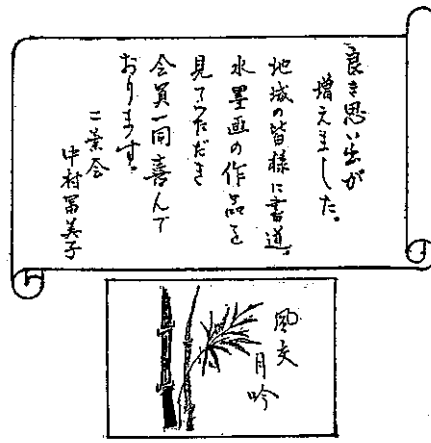 良き思い出が
増えました。
地域の皆様に書道、
水墨画の作品を
見ていただき
会員一同喜んで
おります。
二葉会
中村冨美子
風交
月吟